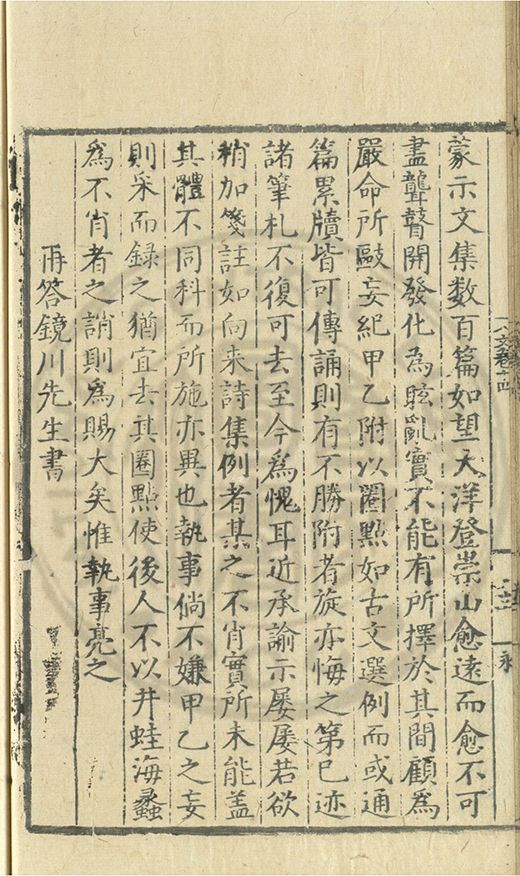 蒙示文集数百篇如望大洋登崇山愈遠而愈不可
盡聾瞽開發化為眩亂實不能有所擇於其間顧為
嚴命所敺妄紀甲乙附以圈點如古文選例而或通
篇累牘皆可傳誦則有不勝附者旋亦悔之第已迹
諸筆札不復可去至今為愧耳近承諭示屡屡若欲
稍加箋註如向来詩集例者某之不肖實所未能盖
其體不同科而所施亦異也執事倘不嫌甲乙之妄
則采而録之猶宜去其圈點使後人不以井蛙海蠡
為不肖者之誚則為賜大矣惟執事亮之
再答鏡川先生書